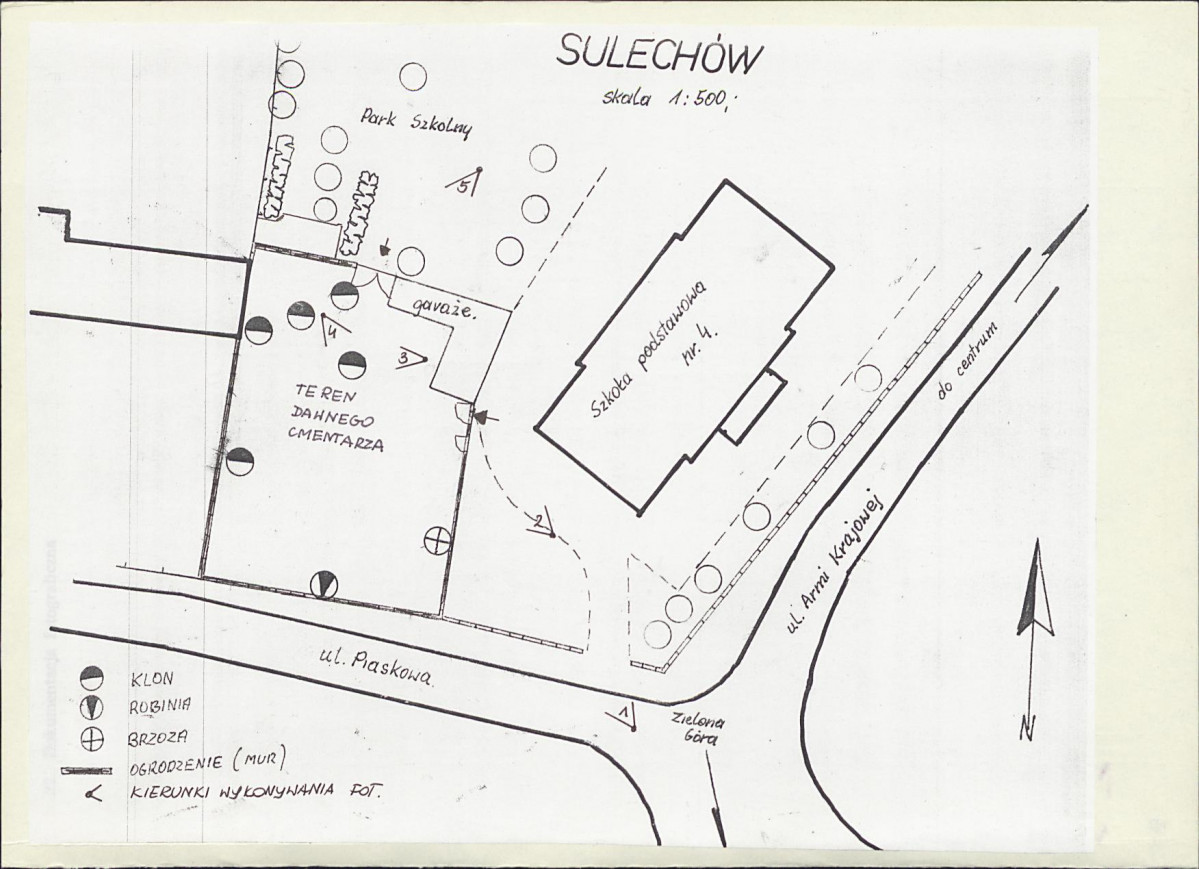 SULECHÓW
skala 1:500,;
Park Szkolny
5
garaże.
4
3
TEREN
DAWNEGO
CMENTARZA
Szkoła podstawowa
nr. 4.
do centrum
2
ul. Armi Krajowej
ul. Piaskowa
1
Zielona
Góra
N
KLON
ROBINIA
BRZOZA
OGRODZENIE (MUR)
KIERUNKI WYKONYWANIA FOT.